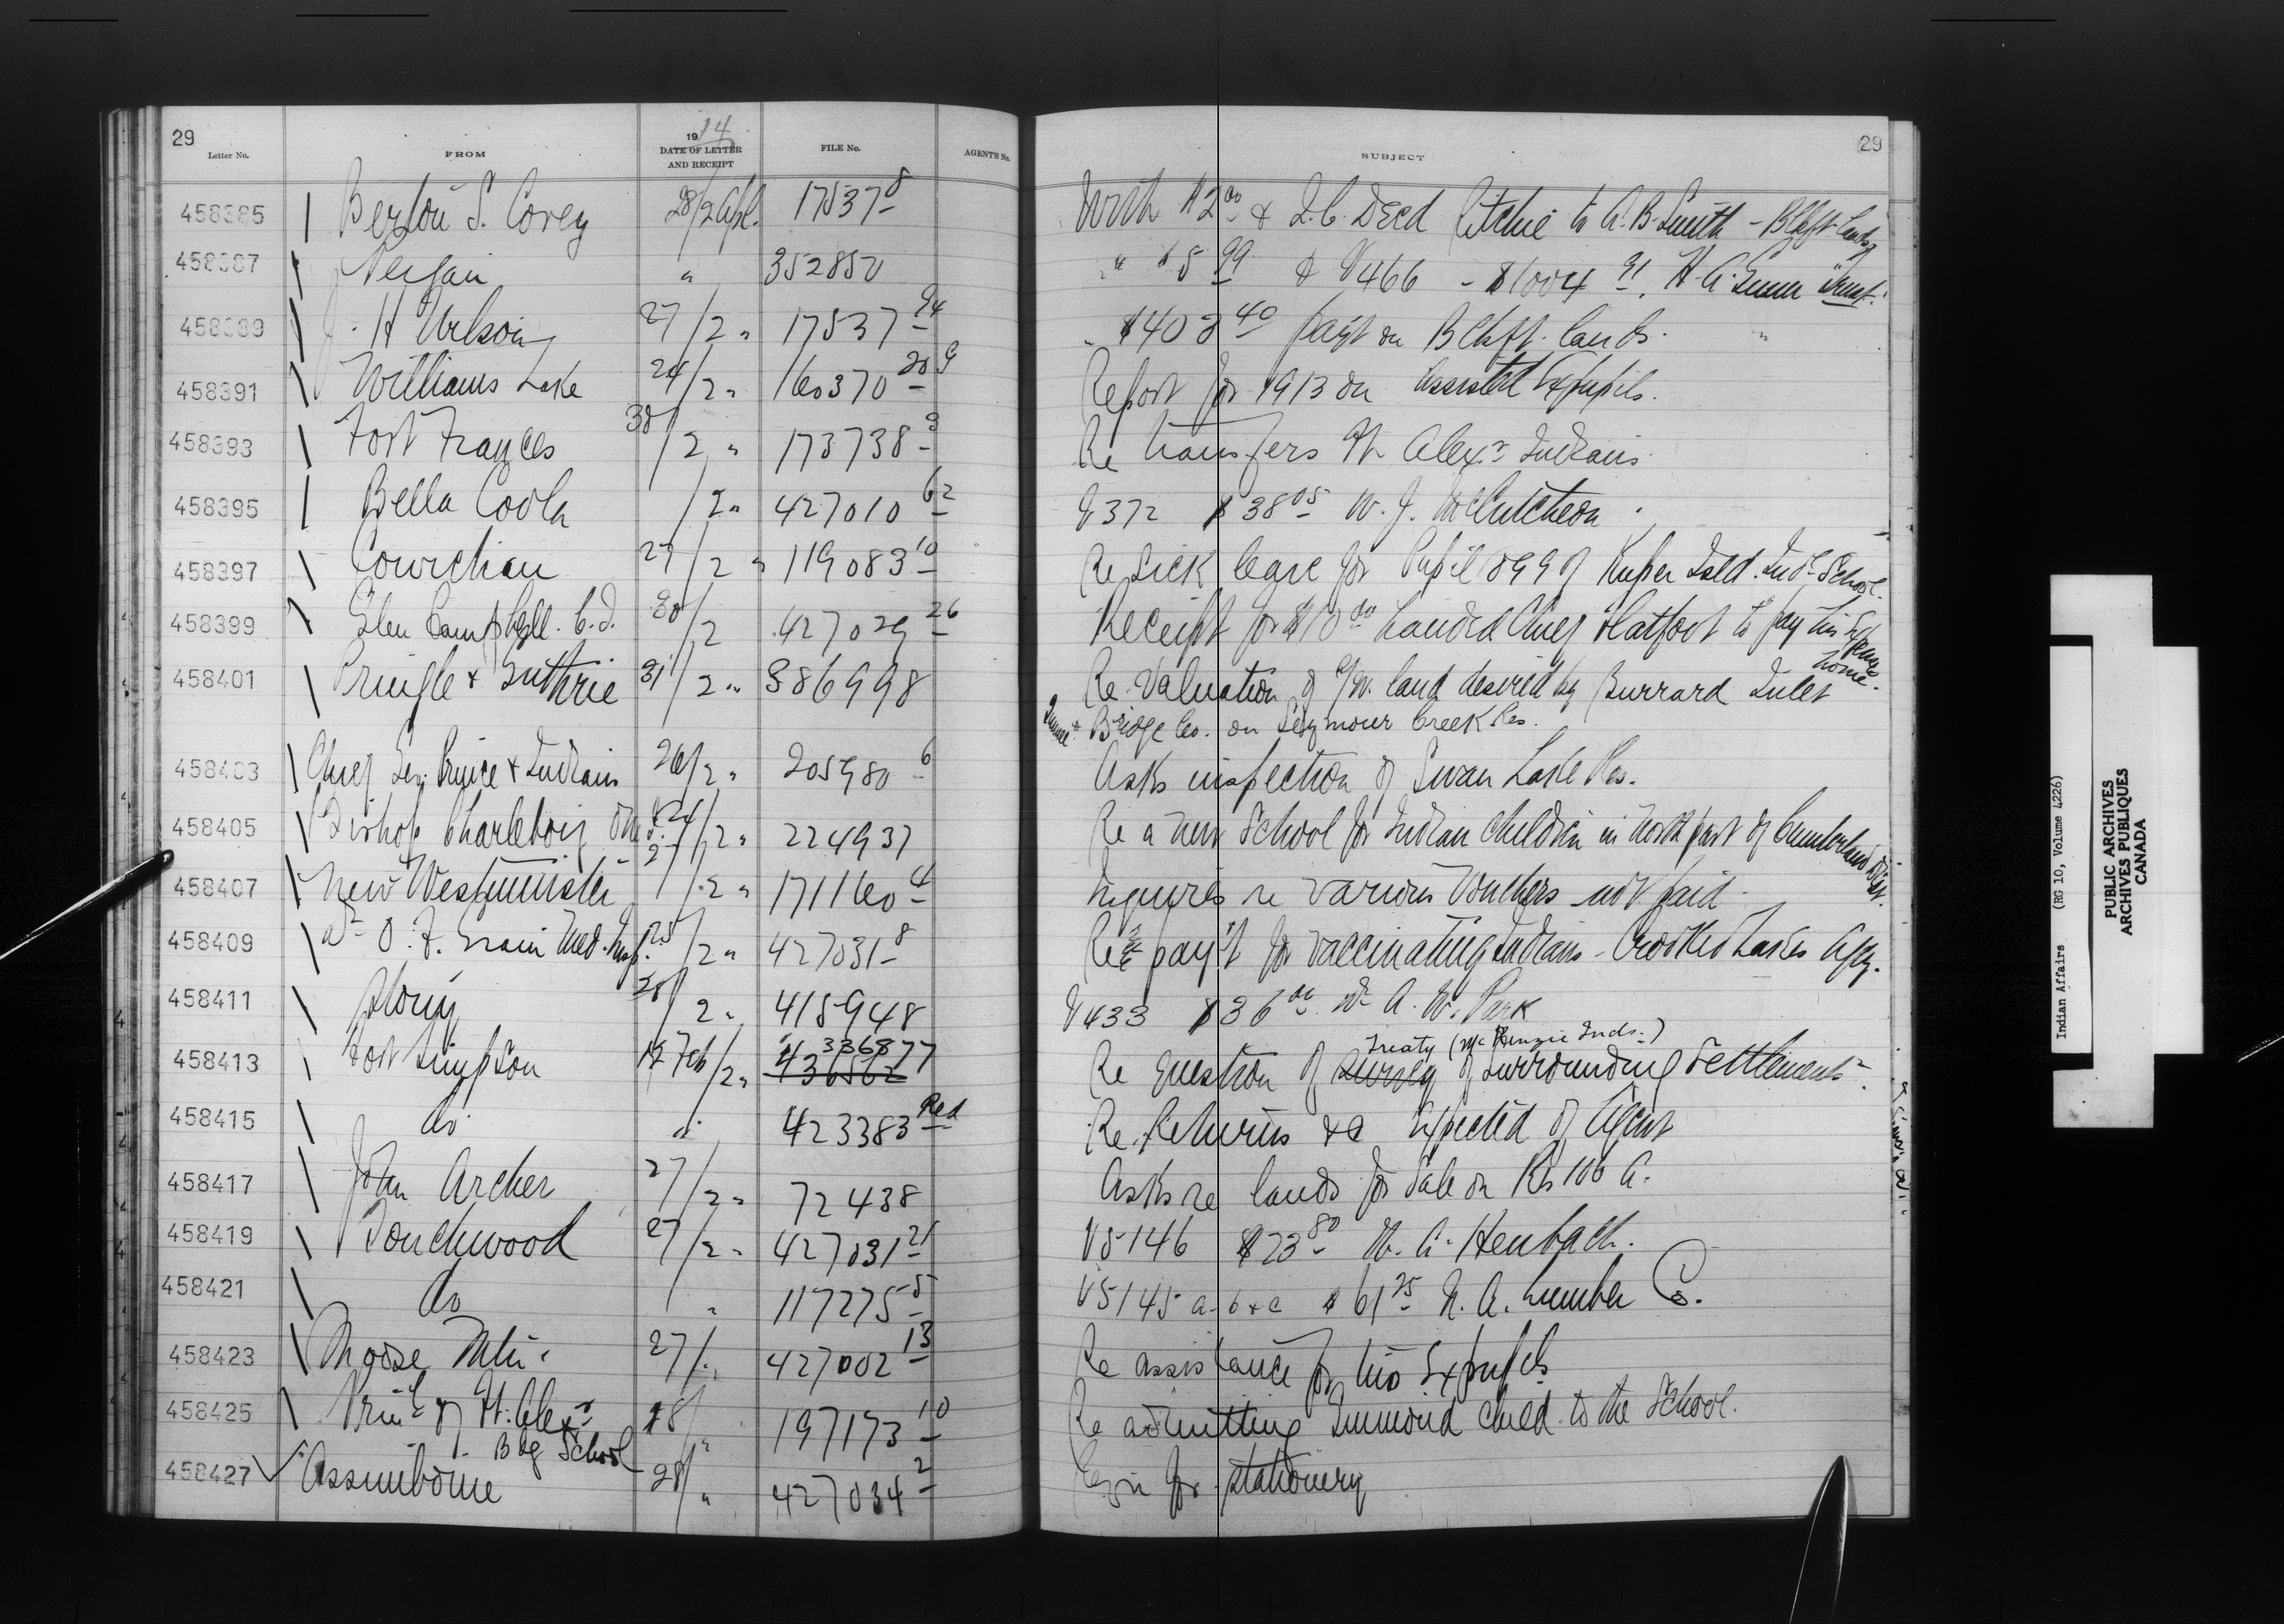 29
Letter No.
FROM
1914
DATE OF LETTER
AND RECEIPT
FILE No.
AGENT'S No.
SUBJECT
29
458385 Berton S. Corey 28/2 Apl. 17537-8 With $2.00 & Q.C. Deed Ritchie to A.B. Smith - Blkft. lands
458387 " 352850 " $5.99 & V466 - $1004.91
458389 J. H Wilson 27/2 " 17537-94 " $403.40 payt on Blkft. lands. "
458391 Williams Lake 24/2 " 160370-209 Report for 1913 on assisted Expupils.
458393 Fort Frances 30/2 " 173738-3 Re transfers Ft Alexr Indians
458395 Bella Coola /2 " 427010-62 V372 $38.05 W. J. McCutcheon
458397 Cowichan 27/2 " 119083-10 Re Sick leave for Pupil 099 of Kuper Isld. Indl School.
458399 Glen Campbell. C.I. 30/2 427029-26 Receipt for $10.00 handed Chief Flatfoot to pay his Expenses
home.
458401 Pringle & Guthrie 31/2 " 386998 Re Valuation of R/W. land desired by Burrard Inlet
Tunnel & Bridge Co. on Seymour Creek Res.
458403 Chief Geo. Prince & Indians 26/2 " 205980-6 Asks inspection of Swan Lake Res.
458405 Bishop Charlebois 24/2 " 224937 Re a new School for Indian Children in North part of Cumberland Dist.
458407 New Westminster 27/2 " 171160-4 Inquires re various Vouchers not paid
458409 Dr O. I. Grain Med. Insp. 25/2 " 427031-8 Re pay't for vaccinating Indians - Crooked Lakes Agcy.
458411 28/2 " 415948 V433 $36.00 Dr A. W. Park
458413 Fort Simpson 12 Feb/2 " 336877
436562
Treaty (McKenzie Inds.)
Re question of Survey of Surrounding Settlements.
458415 do " 423383 Red Re Returns &c expected of Agent
458417 John Archer 27/2 " 72438 Asks re lands for sale on Rs 106 A.
458419 Touchwood 27/2 " 427031-21 V5146 $23.80 W. A. Heubach.
458421 do " 117275-5 V5145 a-b & c $61.25 N. A. Lumber Co.
458423 Moose Mtn. 27/ " 427002-13 Re assistance for two Expupils
458425 Prinl of Ft. Alexr
Bdg School 28/ " 197173-10 Re admitting child to the School.
458427 Assiniboine 28/ " 427034-2 Reqn for stationery
Indian Affairs (RG 10, Volume 4226)
PUBLIC ARCHIVES
ARCHIVES PUBLIQUES
CANADA